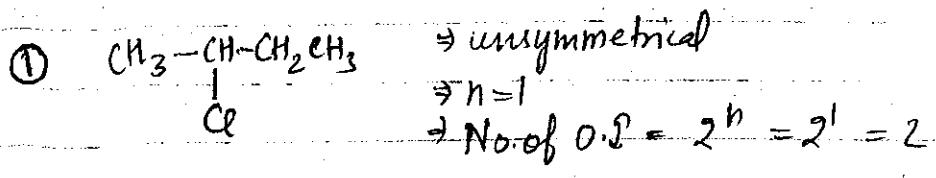 ① CH₃-CH-CH₂CH₃ ⇒ unsymmetrical
Cl ⇒ n=1
⇒ No. of O.I = 2ⁿ = 2¹ = 2